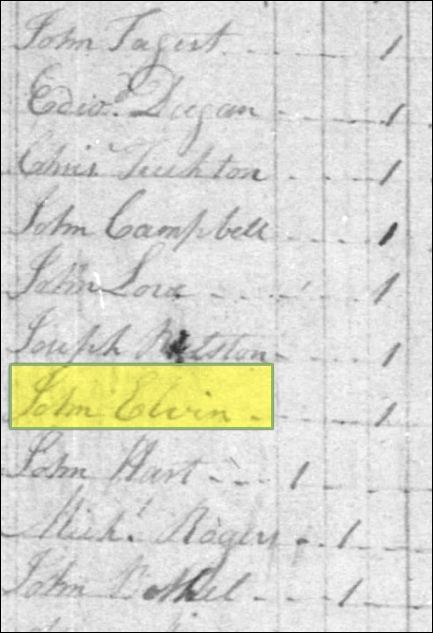 John Tagert 1
Edwd. Dugan 1
Chris 1
John Campbell 1
John Love 1
Joseph 1
John Elvin 1
John Hart 1
Michl. Rogers 1
John 1